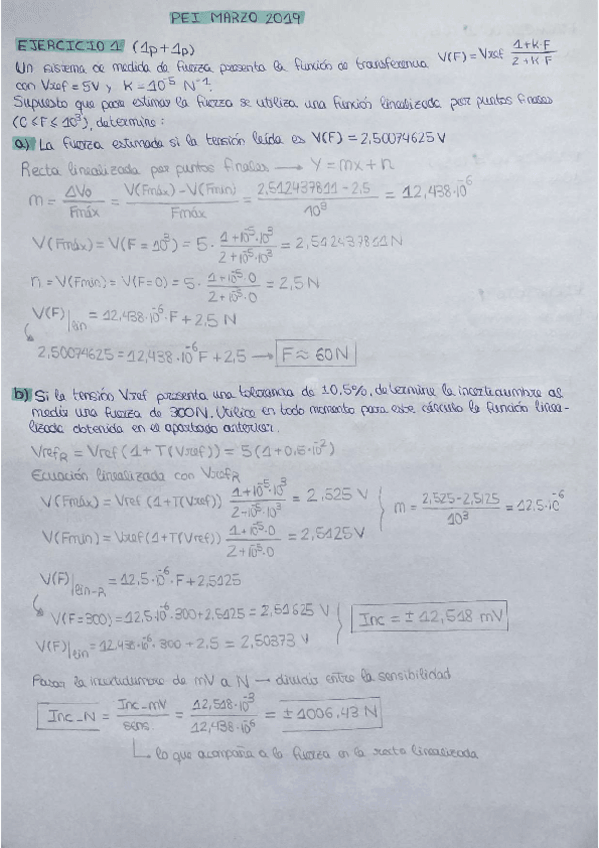 PEI MARZO 2019
EJERCICIO 1 (1p + 1p)
Un sistema de medida de fuerza presenta la función de transferencia V(F) = Vref (1+K·F)/(2+K·F)
con Vref = 5V y K = 10^-5 N^-1.
Supuesto que para estimar la fuerza se utiliza una función linealizada por puntos finales
(0 ≤ F ≤ 10^3), determine:
a) La fuerza estimada si la tensión leída es V(F) = 2,50074625 V
Recta linealizada por puntos finales → Y = mx + n
m = ΔVo/Fmáx = (V(Fmáx) - V(Fmin))/Fmáx = (2,512437811 - 2,5)/10^3 = 12,438·10^-6
V(Fmáx) = V(F = 10^3) = 5 · (1+10^-5·10^3)/(2+10^-5·10^3) = 2,512437811 N
n = V(Fmin) = V(F=0) = 5 · (1+10^-5·0)/(2+10^-5·0) = 2,5 N
V(F)|lin = 12,438·10^-6·F + 2,5 N
2,50074625 = 12,438·10^-6 F + 2,5 → F ≈ 60 N
b) Si la tensión Vref presenta una tolerancia de ±0,5%, determine la incertidumbre al
medir una fuerza de 300N. Utilice en todo momento para este cálculo la función linea-
lizada obtenida en el apartado anterior.
VrefR = Vref (1 + T(Vref)) = 5(1 + 0,5·10^-2)
Ecuación linealizada con VrefR
V(Fmáx) = Vref (1+T(Vref)) (1+10^-5·10^3)/(2-10^-5·10^3) = 2,525 V } m = (2,525 - 2,5125)/10^3 = 12,5·10^-6
V(Fmin) = Vref (1+T(Vref)) (1+10^-5·0)/(2+10^-5·0) = 2,5125 V
V(F)|lin-R = 12,5·10^-6·F + 2,5125
V(F=300) = 12,5·10^-6·300 + 2,5125 = 2,51625 V } Inc = ± 12,518 mV
V(F)|lin = 12,438·10^-6·300 + 2,5 = 2,50373 V
Pasar la incertidumbre de mV a N → dividir entre la sensibilidad
Inc_N = Inc_mV/sens. = 12,518·10^-3/12,438·10^-6 = ± 1006,43 N
lo que acompaña a la fuerza en la recta linealizada